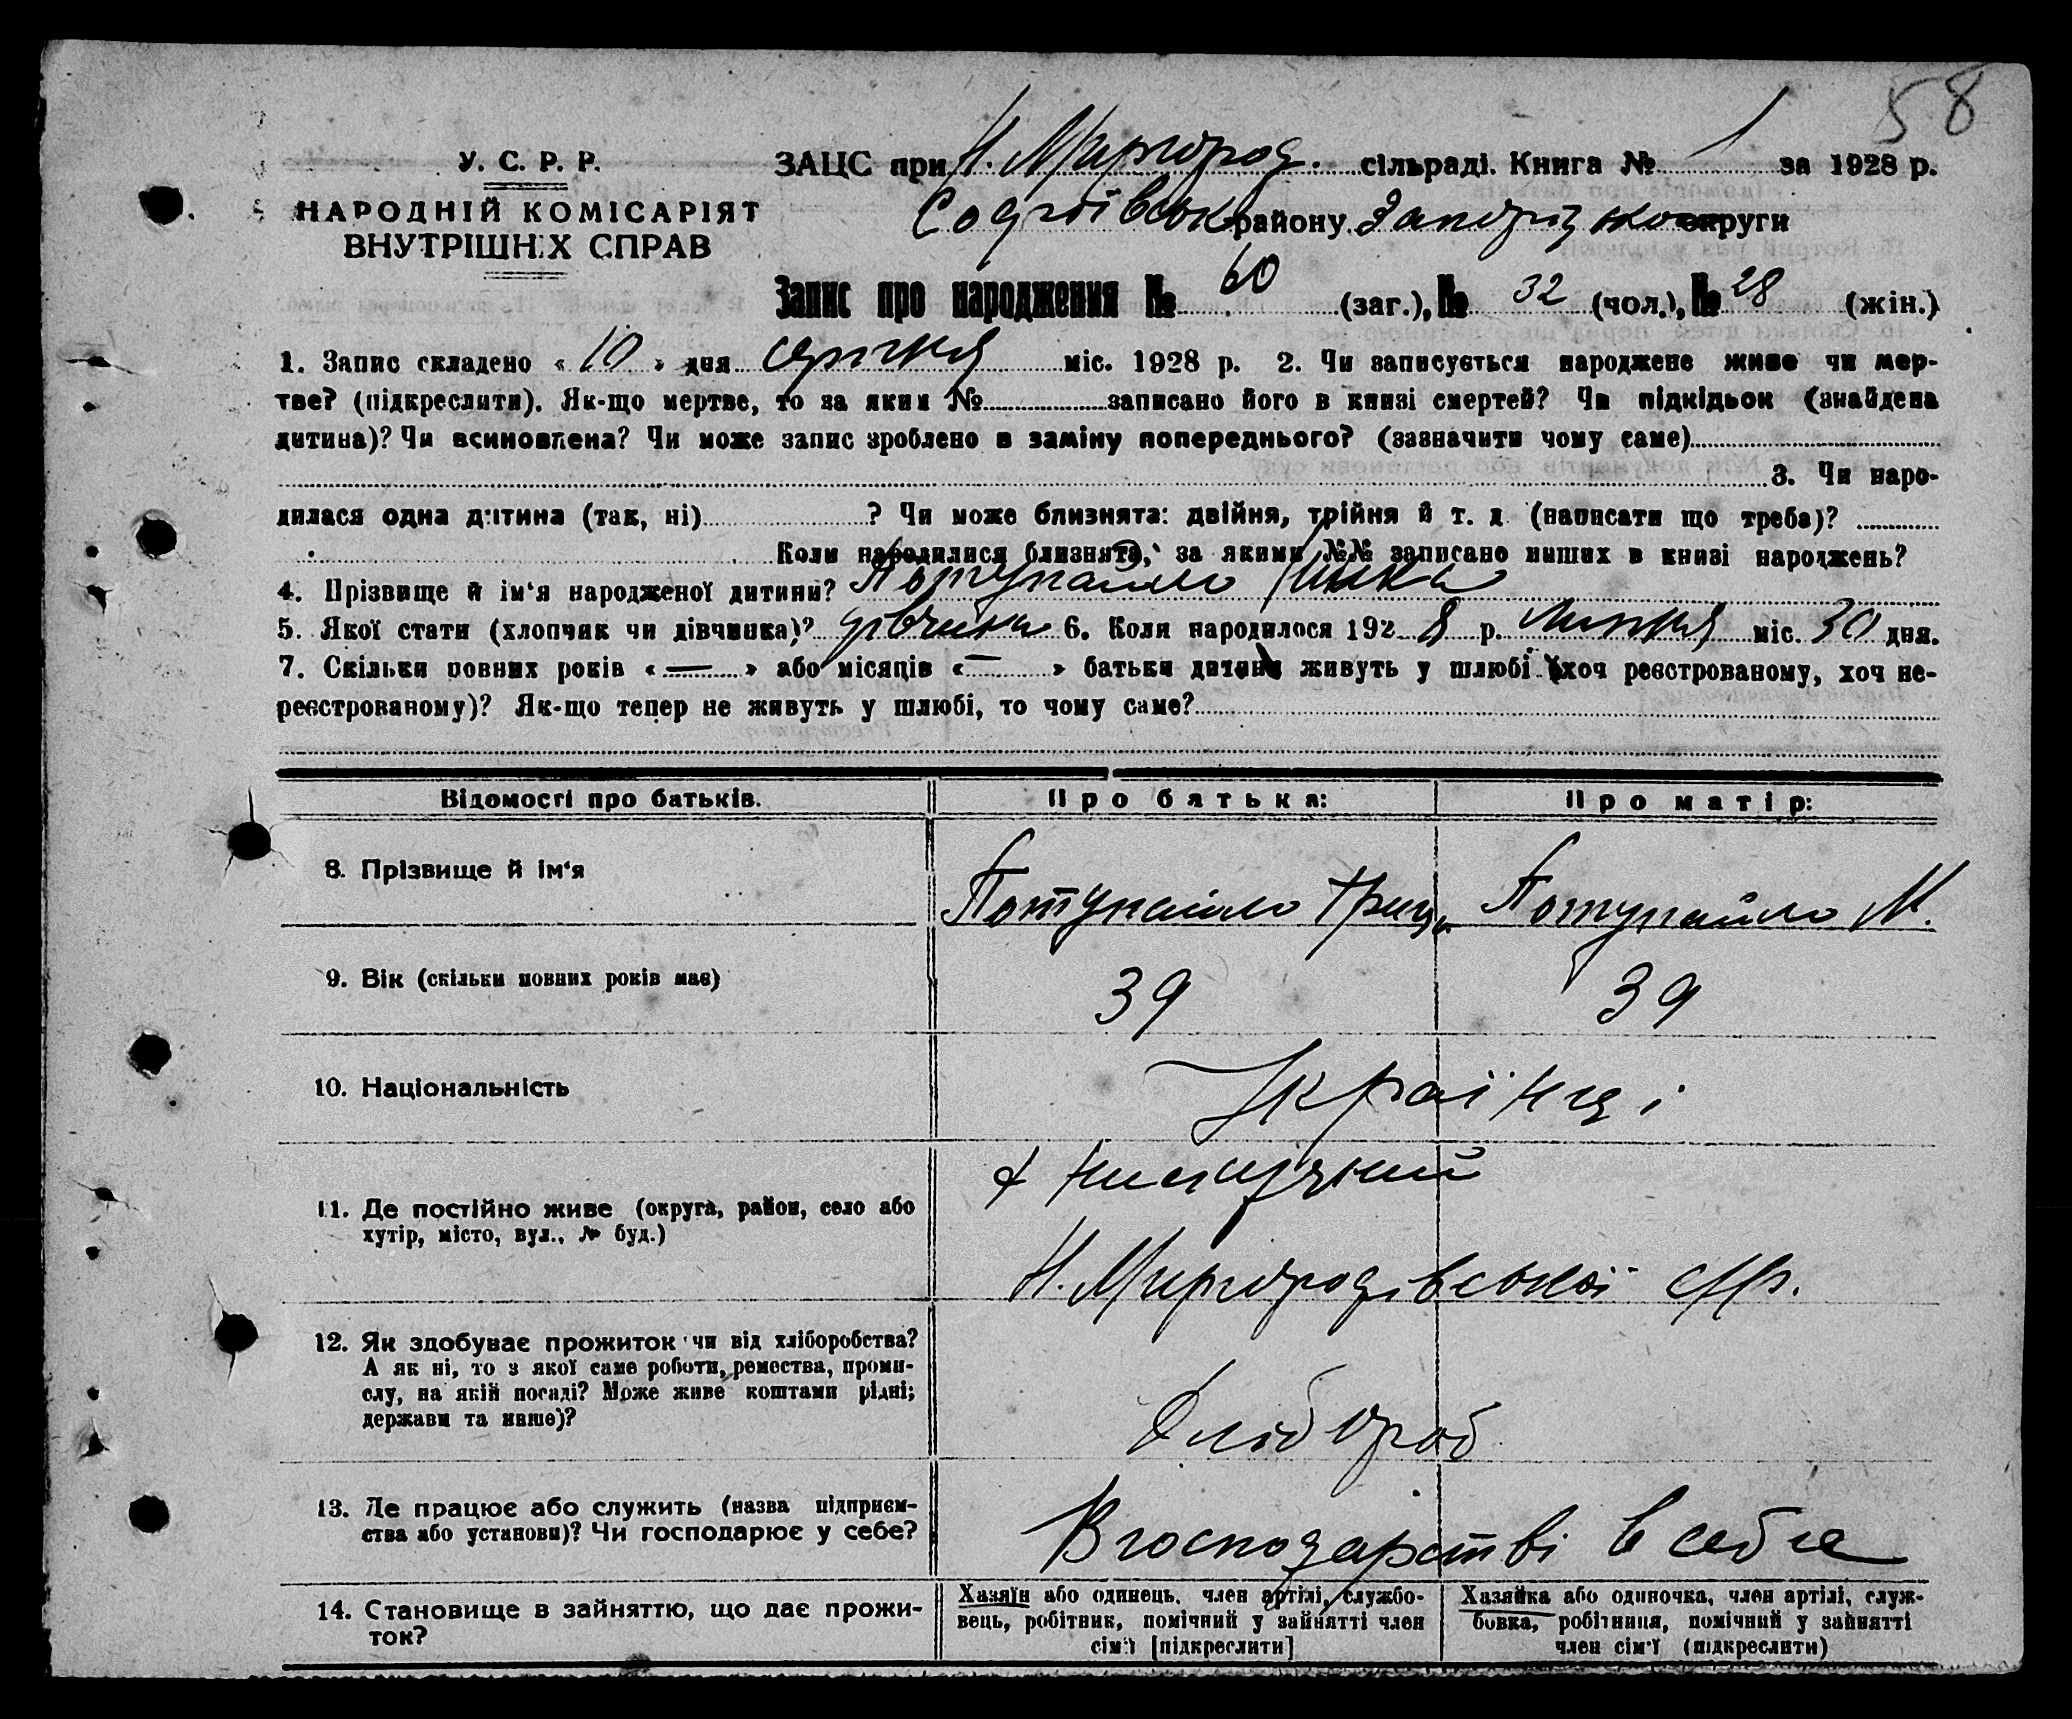 58
У. С. Р. Р.
НАРОДНІЙ КОМІСАРІЯТ
ВНУТРІШНІХ СПРАВ
ЗАЦС при Н. Миргород. сільраді. Книга № 1 за 1928 р.
району Запорізької округи
Запис про народження № 60 (заг.), № 32 (чол.), № 28 (жін.)
1. Запис складено « 10 » дня серпня міс. 1928 р. 2. Чи записується народжене живе чи мер-
тве? (підкреслити). Як-що мертве, то за яким № записано його в книзі смертей? Чи підкідьок (знайдена
дитина)? Чи всиновлена? Чи може запис зроблено в заміну попереднього? (зазначити чому саме)
3. Чи наро-
дилася одна дитина (так, ні) ? Чи може близнята: двійня, трійня й т. д (написати що треба)?
Коли народилися близнята, за якими №№ записано инших в книзі народжень?
4. Прізвище й ім'я народженої дитини? Потупайло
5. Якої стати (хлопчик чи дівчинка)? дівчинка 6. Коли народилося 1928 р. липня міс. 30 дня.
7. Скільки повних років « — » або місяців « — » батьки дитини живуть у шлюбі (хоч реєстрованому, хоч не-
реєстрованому)? Як-що тепер не живуть у шлюбі, то чому саме?
Відомості про батьків. Про батька: Про матір:
8. Прізвище й ім'я Потупайло Гриць Потупайло М.
9. Вік (скільки повних років має) 39 39
10. Національність Українці
11. Де постійно живе (округа, район, село або
хутір, місто, вул., № буд.)
Н. Миргородівської с/р.
12. Як здобуває прожиток чи від хліборобства?
А як ні, то з якої саме роботи, ремества, проми-
слу, на якій посаді? Може живе коштами рідні;
держави та инше)?
Хлібороб
13. Де працює або служить (назва підприєм-
ства або установи)? Чи господарює у себе?
В господарстві в себе
14. Становище в зайняттю, що дає прожи-
ток?
Хазяїн або одинець, член артілі, службо-
вець, робітник, помічний у зайнятті член
сім'ї [підкреслити]
Хазяйка або одиночка, член артілі, служ-
бовка, робітниця, помічний у зайнятті
член сім'ї (підкреслити)